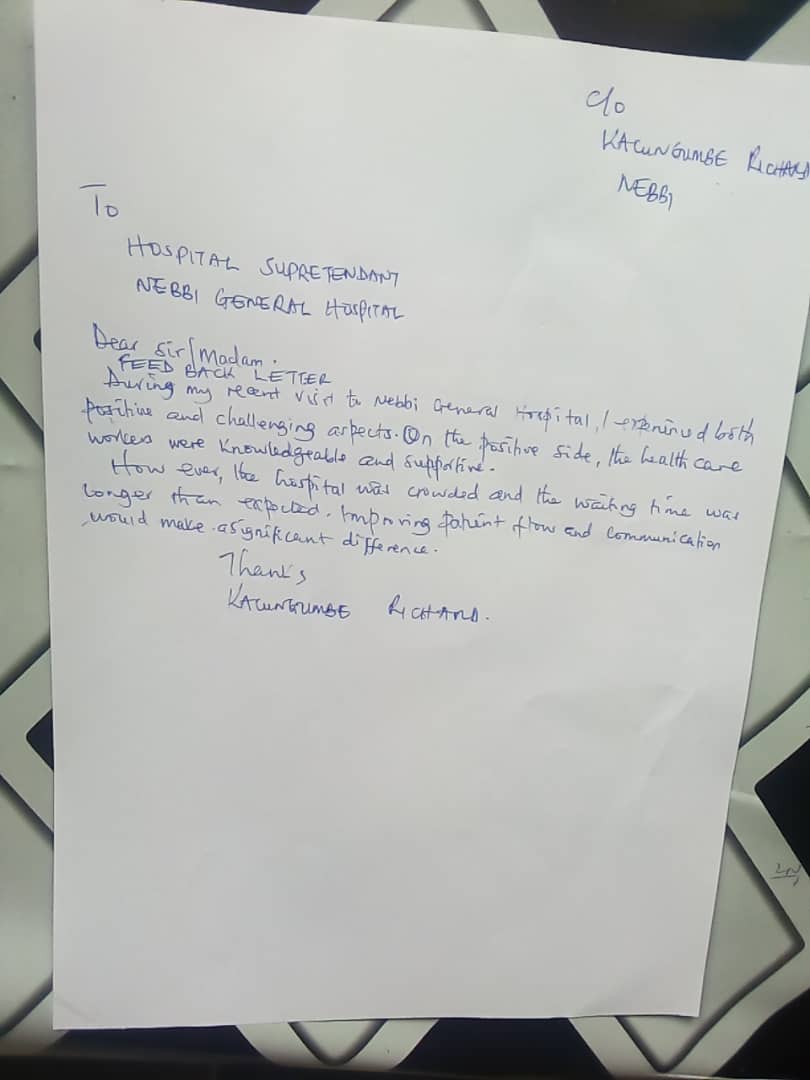 c/o
KACUNGUMBE RICHARD
NEBBI
To
HOSPITAL SUPRETENDANT
NEBBI GENERAL HOSPITAL
Dear Sir/Madam.
FEED BACK LETTER
During my recent visit to Nebbi General Hospital, I both
positive and challenging aspects. On the positive side, the health care
workers were knowledgeable and supportive.
How ever, the hospital was crowded and the waiting time was
longer than expected. Improving patient flow and communication
would make a significant difference.
Thanks
KACUNGUMBE RICHARD.